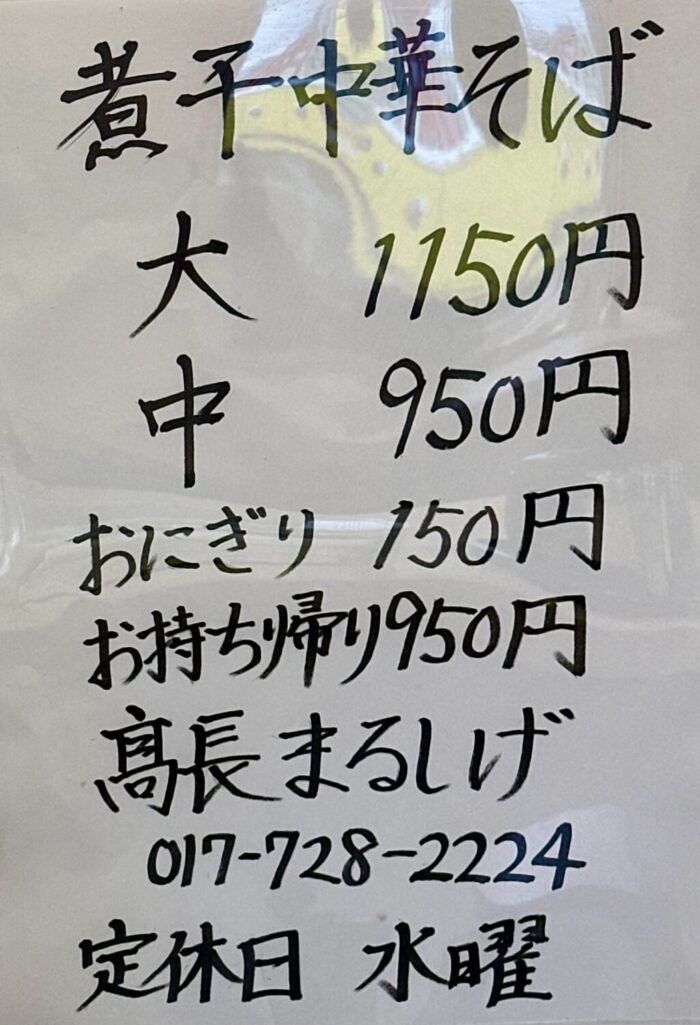 煮干中華そば
大 1150円
中 950円
おにぎり 150円
お持ち帰り950円
髙長まるしげ
017-728-2224
定休日 水曜